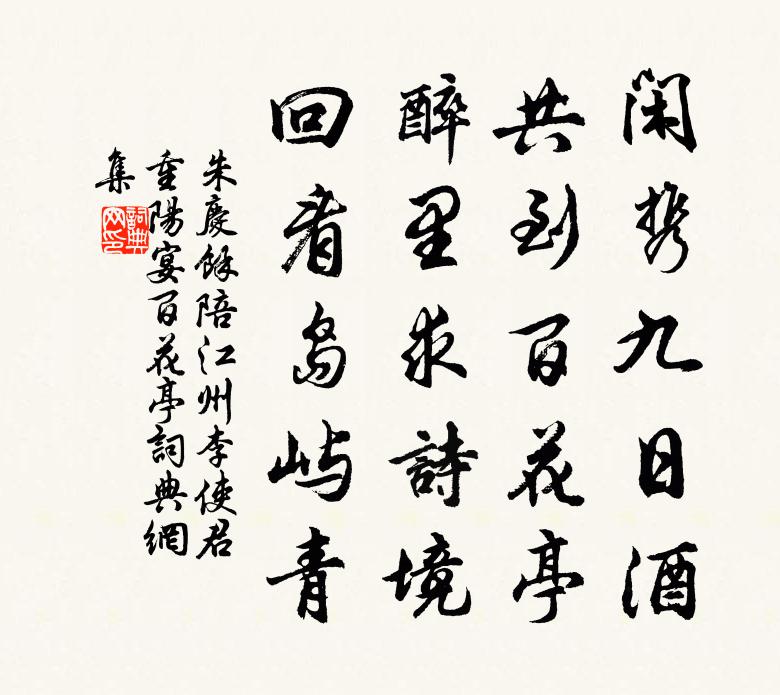 闲携九日酒
共到百花亭
醉里求詩境
回看岛屿青
朱慶餘陪江州李使君
重陽宴百花亭詞典網
集
詞典
网印